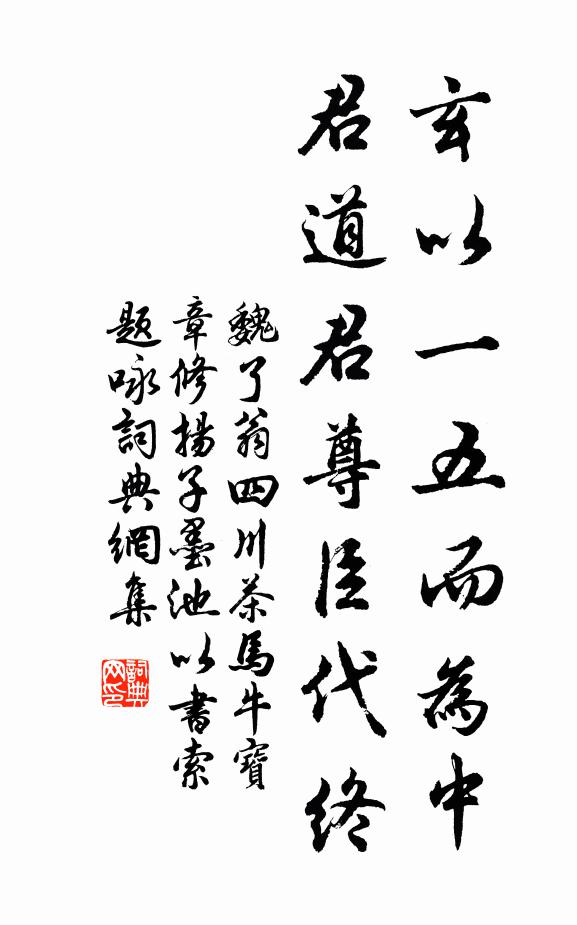 玄以一五而為中
君道君尊臣代終
魏了翁四川茶馬牛寶
章修揚子墨池以書索
題咏詞典網集
詞典網印